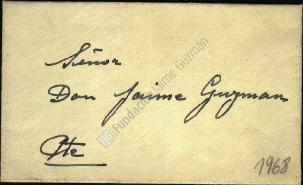 Señor
Don Jaime Guzman
Pte
1968
Fundación Jaime Guzmán